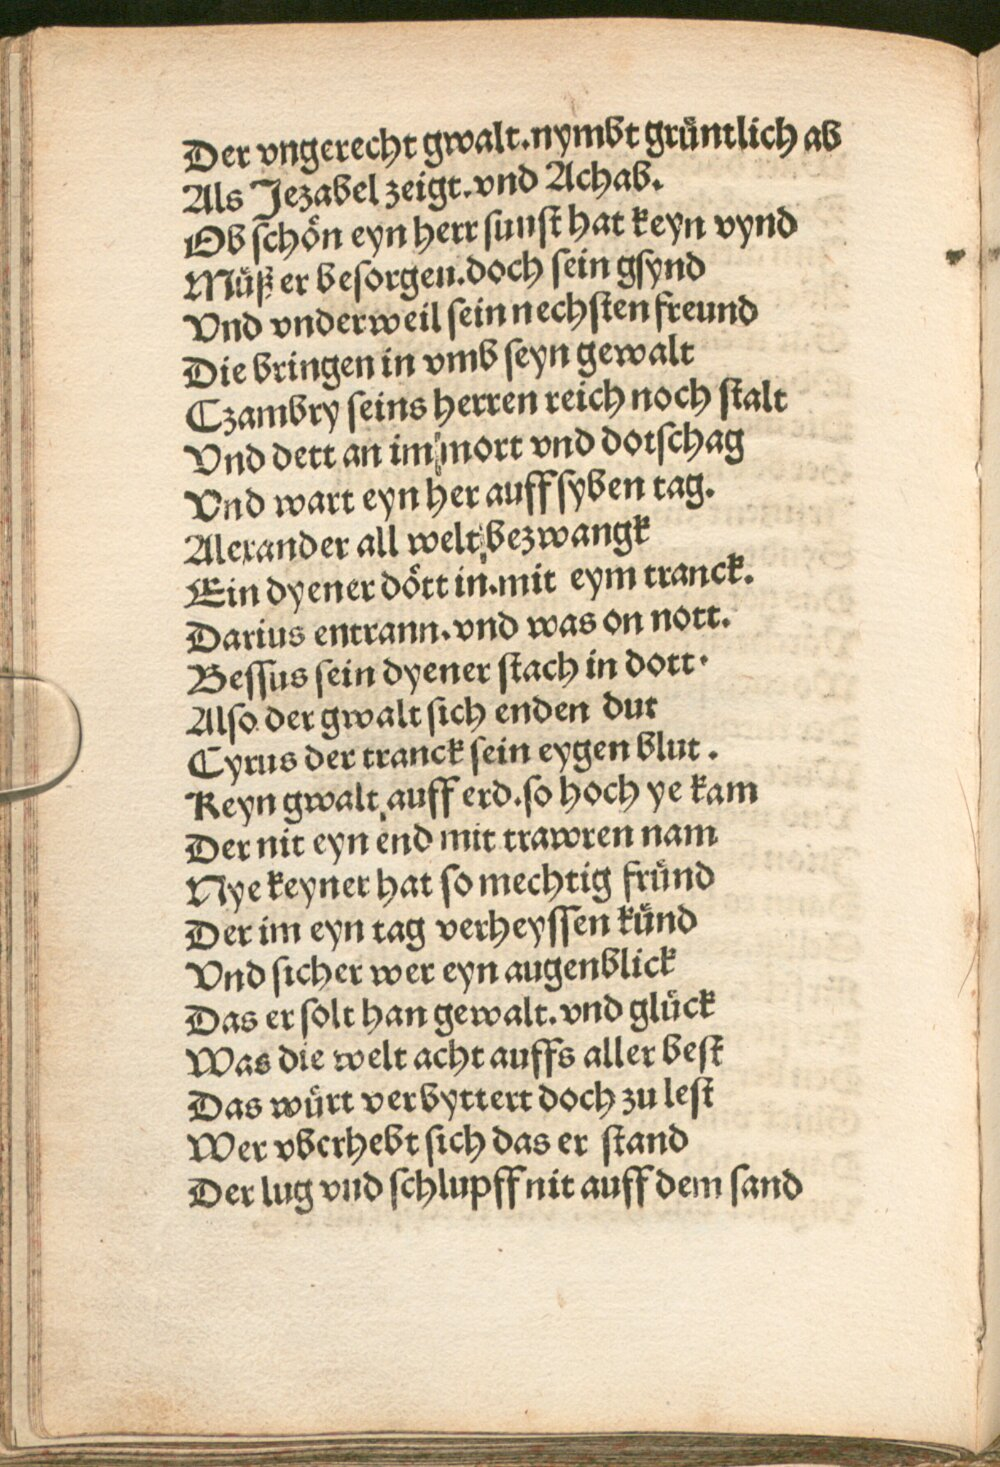 Der vngerecht gwalt.nymbt grüntlich ab
Als Jezabel zeigt.vnd Achab.
Ob schön eyn herr sunst hat keyn vynd
Müß er besorgen.doch sein gsynd
Vnd vnderweil sein nechsten freund
Die bringen in vmb seyn gewalt
Czambry seins herren reich noch stalt
Vnd dett an im mort vnd dotschag
Vnd wart eyn her auff syben tag.
Alexander all welt bezwangk
Ein dyener dött in.mit eym tranck.
Darius entrann.vnd was on nott.
Bessus sein dyener stach in dott.
Also der gwalt sich enden dut
Cyrus der tranck sein eygen blut.
Keyn gwalt auff erd.so hoch ye kam
Der nit eyn end mit trawren nam
Nye keyner hat so mechtig fründ
Der im eyn tag verheyssen künd
Vnd sicher wer eyn augenblick
Das er solt han gewalt.vnd glück
Was die welt acht auffs aller best
Das würt verbyttert doch zu lest
Wer vberhebt sich das er stand
Der lug vnd schlupff nit auff dem sand